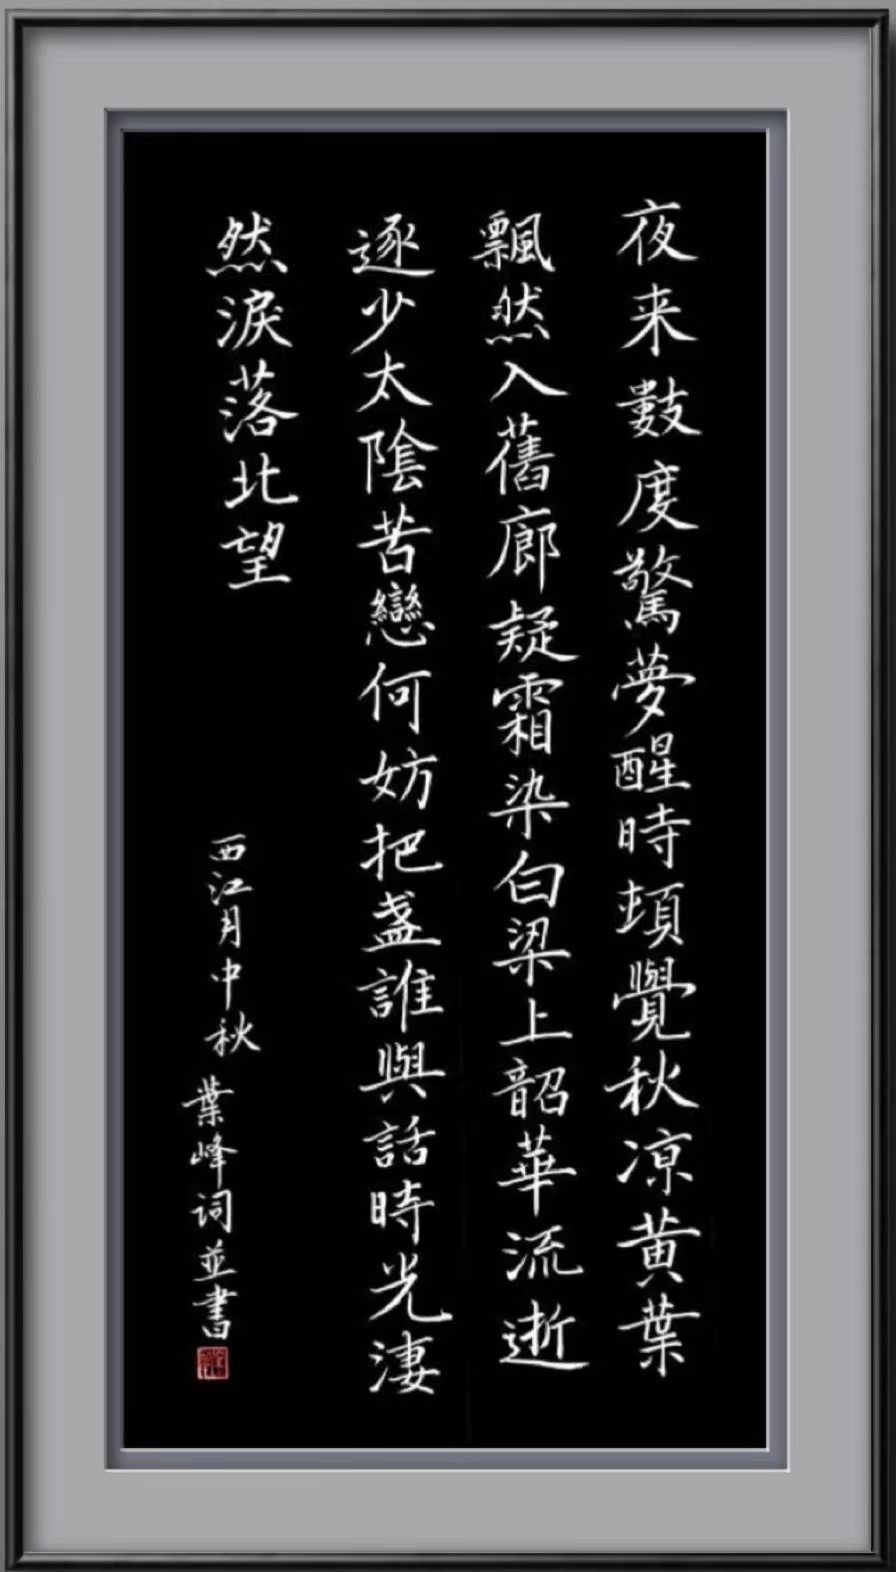 夜来數度驚夢醒時頓覺秋凉黄葉
飄然入舊廊疑霜染白梁上韶華流逝
逐少太陰苦戀何妨把盞誰與話時光淒
然淚落北望
西江月中秋
葉峰词並書